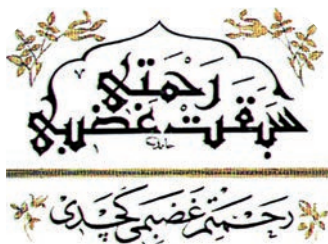 رَحْمَتِي
سَبَقَتْ غَضَبِي
حامد
رحمتم غضبمی كچدی